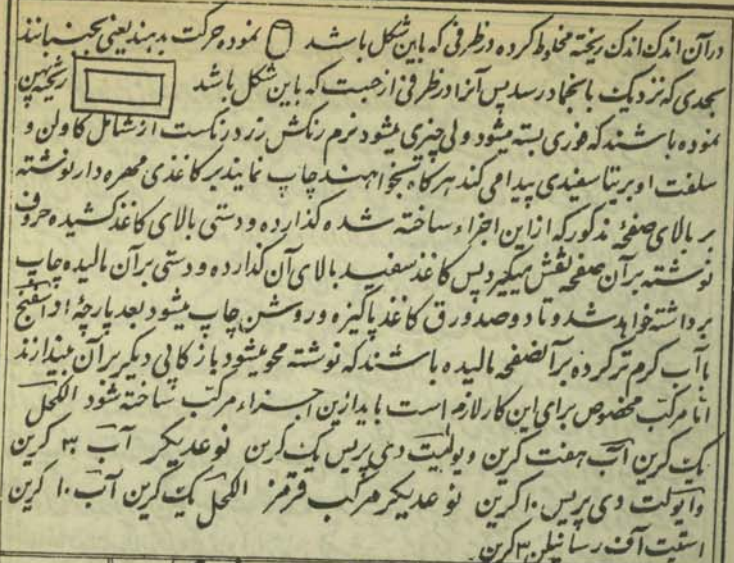 درآن اندک اندک ریخته مخلوط کرده درظرفی که باین شکل باشد نموده حرکت بدهند یعنی بجنبانند
بحدی که نزدیک بانجماد رسد پس آنرا درظرفی ازحبست که باین شکل باشد ریخته پهن
نموده باشند که فوری بسته میشود ولی چیزی میشود نرم رنگش زرد رنگست از شامل کاولن و
سلفت او بریتا سفیدی پیدا می کند هرکاه بخواهند چاپ نمایند بر کاغذی مهره دار نوشته
بر بالای صفحهٔ مذکور که ازاین اجزاء ساخته شده گذارده و دستی بالای کاغذ کشیده حروف
نوشته برآن صفحه نقش میگیرد پس کاغذ سفید بالای آن گذارده و دستی برآن مالیده چاپ
برداشته خواهد شد و تا دوصد ورق کاغذ پاکیزه و روشن چاپ میشود بعد پارچهٔ اداسفنج
باآب کرم ترکرده برآنصفحه مالیده باشند که نوشته محو میشود باز کاپی دیکر برآن میندازند
اما مرکب مخصوص برای این کار لازم است باید ازین اجزاء مرکب ساخته شود الکحل
یک کرین آب هفت کرین ویولیت دی پریس یک کرین نوعدیکر آب ۳ کرین
وایولت دی پریس ۱۰ کرین نوعدیکر مرکب قرمز الکحل یک کرین آب ۱۰ کرین
استیت آف رسانیلن ۳ کرین